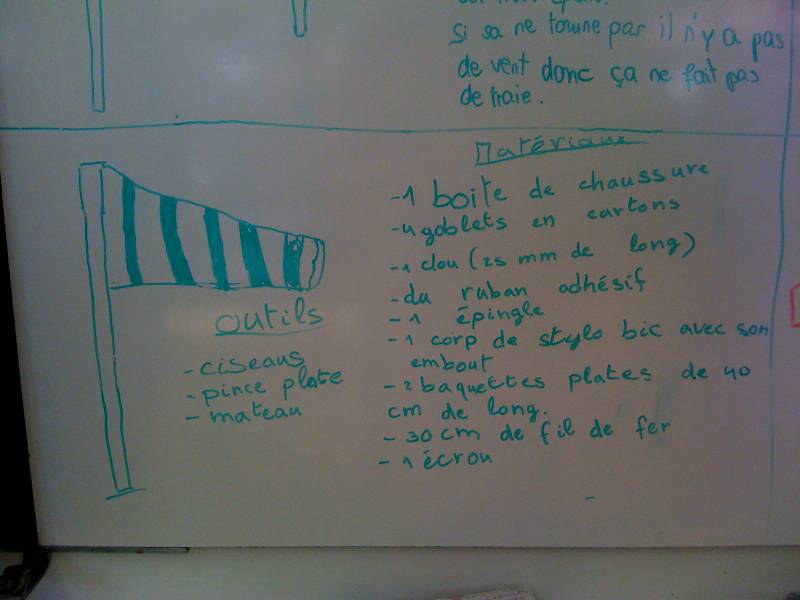 Si sa ne tourne par il n'y a pas
de vent donc ça ne fait pas
de traie.
Matériaux
-1 boite de chaussure
-4 goblets en cartons
-1 clou (25 mm de long)
-du ruban adhésif
-1 épingle
-1 corp de stylo bic avec son
embout
-2 baquettes plates de 40
cm de long.
-30 cm de fil de fer
-1 écrou
Outils
-ciseaus
-pince plate
-mateau